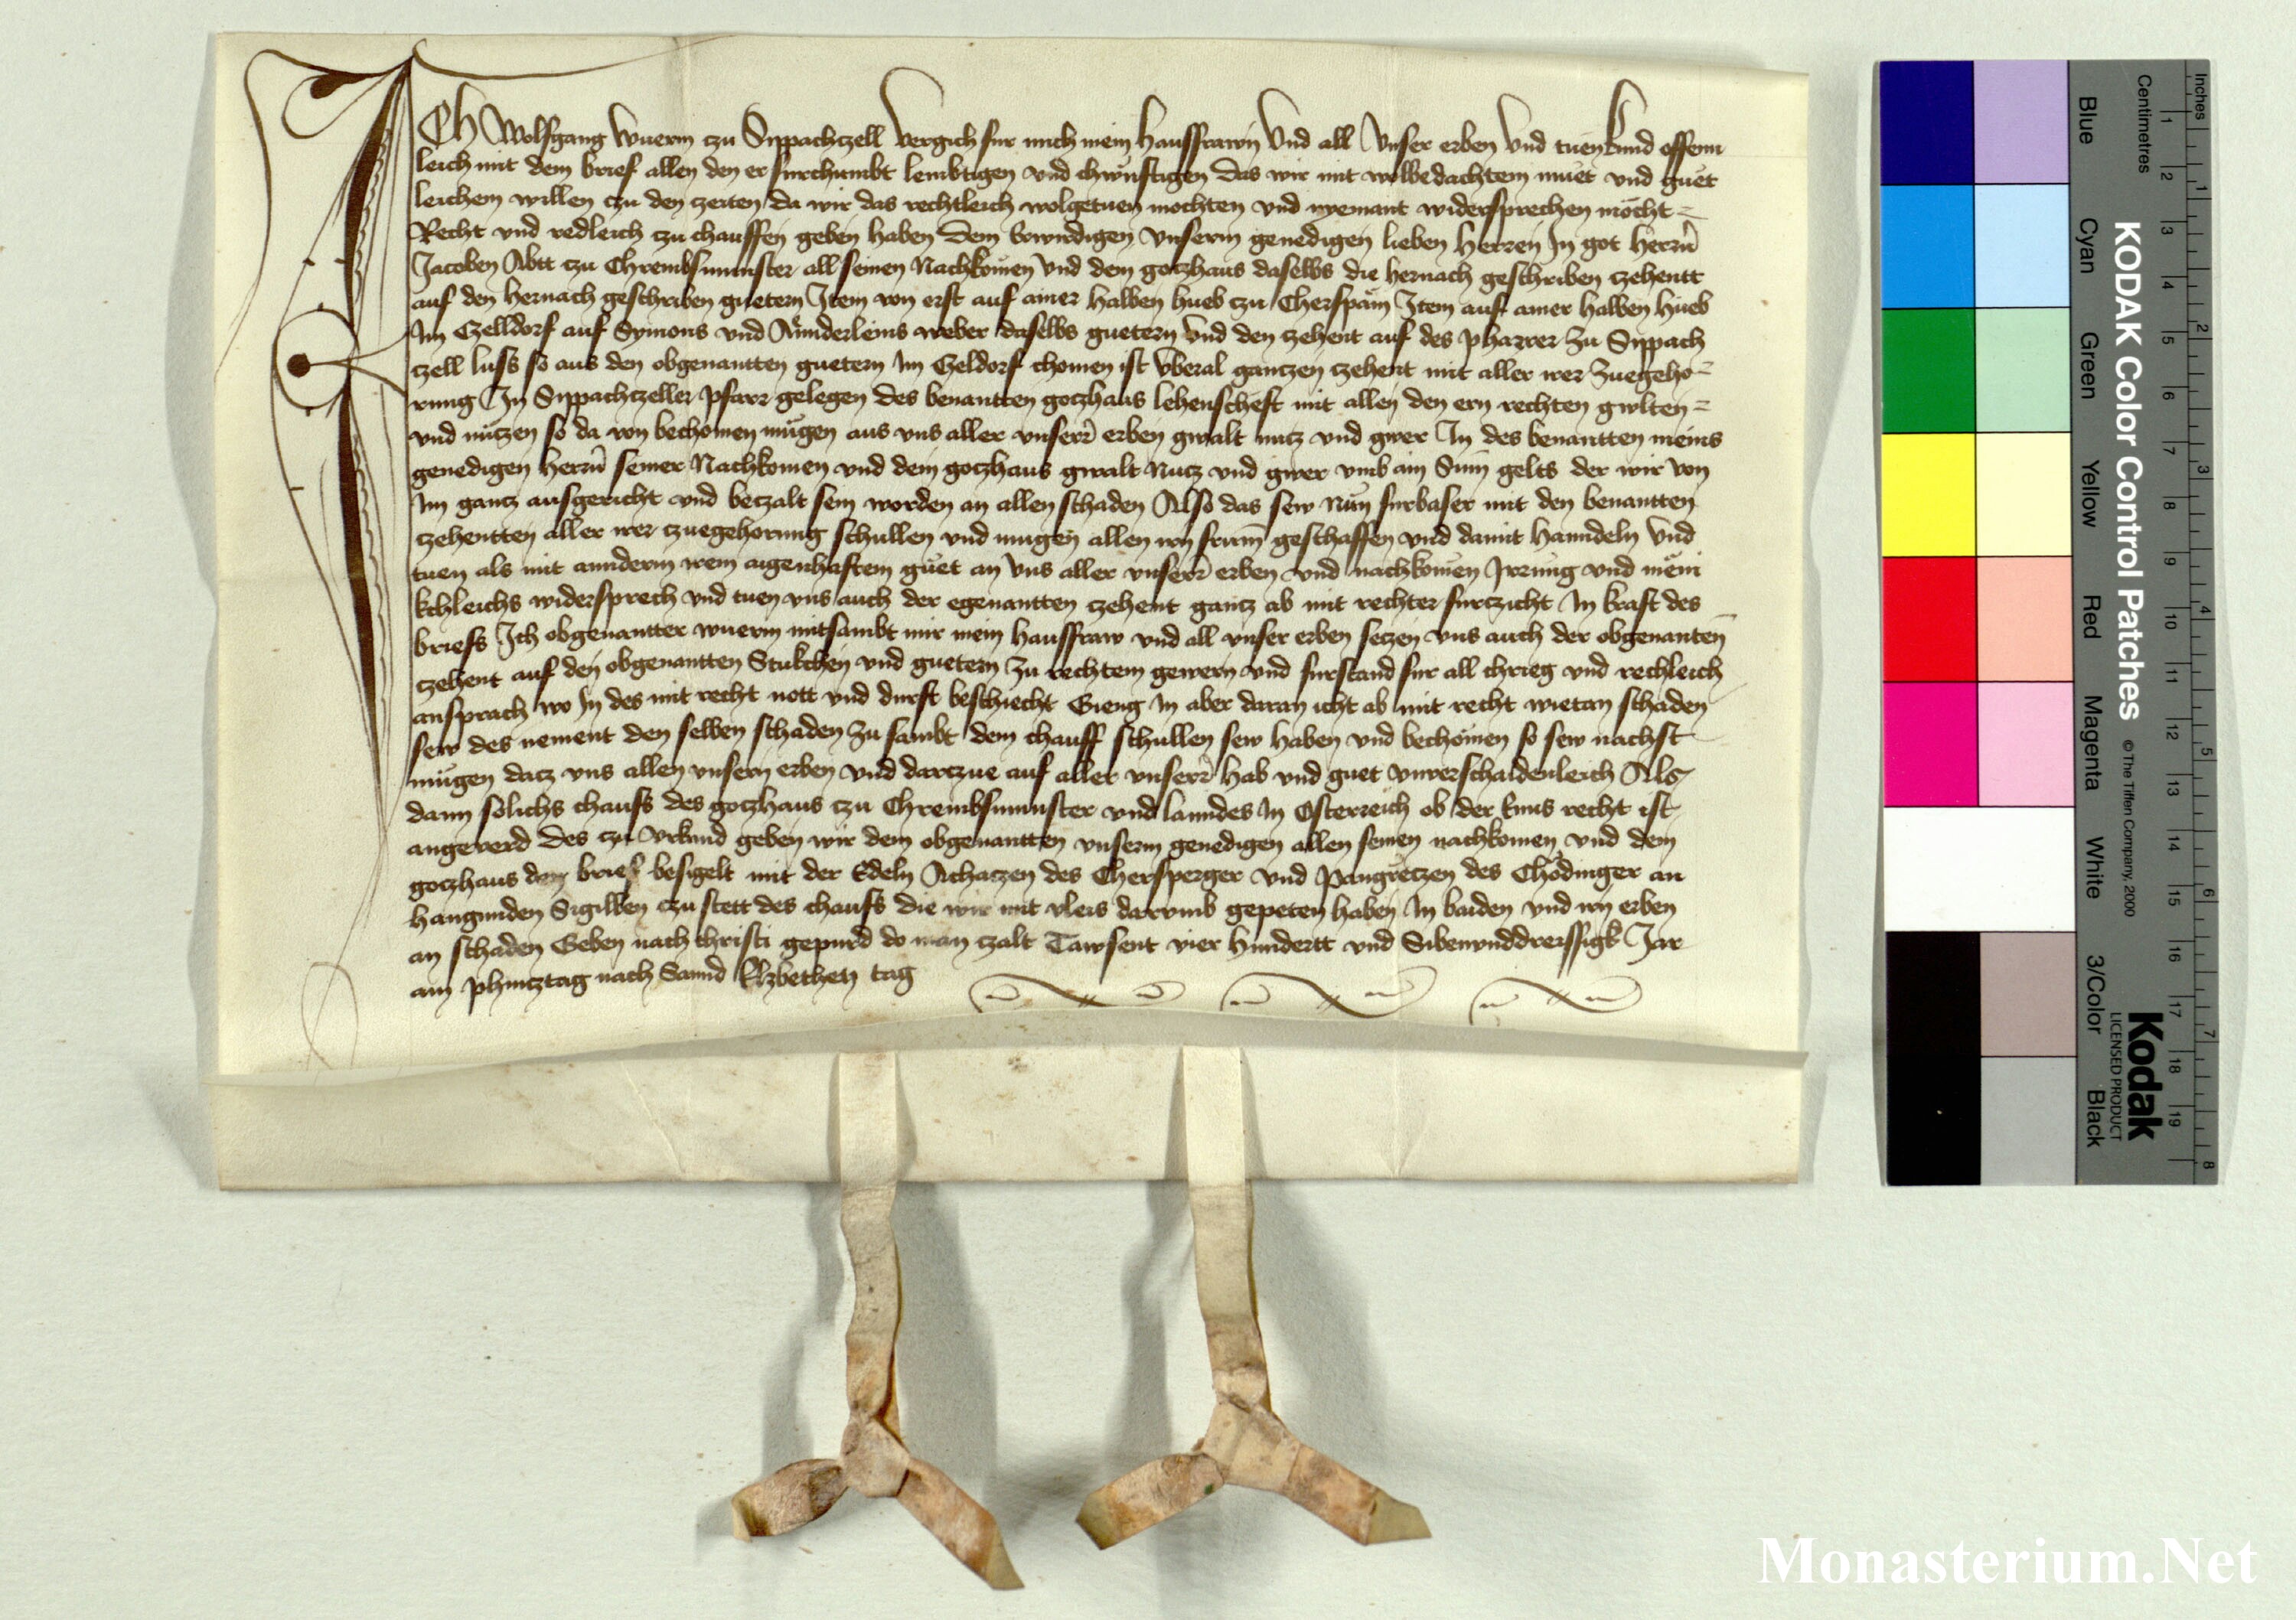 ICh Wolfgang Wuerm czu Sippachczell Vergich fur mich mein Hausfrawn Und all Unser erben Und tuen kund offenn
leich mit dem brief allen den er furchumbt lembtigen und chunftigen Das wir mit wolbedachtem muet und guet
leichem willen czu den czeiten da wir das rechtleich wolgetuen mochten und nyemant widersprechen mocht =
Recht und redleich czu chauffen geben haben Dem Erwirdigen Unserm genedigen lieben Herren In got Herrn
Jacoben Abtt czu Chrembsmunster all seinen Nachkomen Und dem gotzhaus daselbs die hernach geschriben czehentt
auf den hernach geschriben guetern Item von erst auf ainer halben hueb czu Cherspam Item auf ainer halben hueb
Im Czelldorf auf Symons und Annderleins weber daselbs guetern Und den czehent auf des pharrer Zu Sippach
czell luss so aus den obgenantten guetern Im Czeldorf chomen ist Uberal gantzen czehent mit aller irer Zuegeho=
rung In Sippachczeller pfarr gelegen Des benantten gotzhaus lehenscheft mit allen den ern rechten gulten =
und nutzen so da von bechomen mugen aus uns aller unserr erben gwalt nutz und gwer In des benantten meins
genedigen Herrn seiner Nachkomen und dem gotzhaus gwalt Nutz und gwer umb ain Sum gelts der wir von
Im gantz ausgericht und beczalt sein worden an allen schaden Also das sew Nun furbaser mit den benantten
czehentten aller irer czuegehorung schullen und mugen allen irn frum geschaffen und damit hanndeln Und
tuen als mit annderm irem aigenhaftem guet an Uns aller unserr erben und nachkomen Irrung und meni
kchleichs widersprech und tuen uns auch der egenantten czehent gantz ab mit rechter furtzicht In kraft des
briefs Ich obgenantter wuerm mitsambt mir mein hausfraw und all unser erben setzen uns auch der obgenanten
czehent auf den obgenantten Stukchen und guetern Zu rechtem gewern und furstand fur all chrieg und rechleich
ansprach wo In des mit recht nott und durft beschiecht Gieng In aber daran icht ab mit recht wietan schaden
sew des nement den selben schaden Zu sambt dem chauff schullen sew haben und bechomen so sew nachst
mugen datz uns allen unsern erben und dartzue auf aller unserr hab und guet unverschaidenleich Als
dann solichs chaufs des gotzhaus czu Chrembsmunster und lanndes In Osterreich ob der Enns recht ist
angeverd Des czu Urkund geben wir dem obgenantten unserm genedigen allen seinen nachkomen und dem
gotzhaus den brief besigelt mit der Edeln Achatzen des Chersperger und Pangretzen des Chodinger an
hangunden Sigillen czu stett des chaufs die wir mit vleis darumb gepeten haben In baiden und irn erben
an schaden Geben nach christi gepurd do man czalt Tawsent vier Hundertt und Sibenunddreissigk Jar
am phintztag nach Sannd Elzbethen tag
KODAK Color Control Patches
© The Tiffen Company, 2000
Kodak
LICENSED PRODUCT
Inches
Centimetres
Blue
Cyan
Green
Yellow
Red
Magenta
White
3/Color
Black
1 2 3 4 5 6 7 8 9 10 11 12 13 14 15 16 17 18 19
1 2 3 4 5 6 7 8
Monasterium.Net